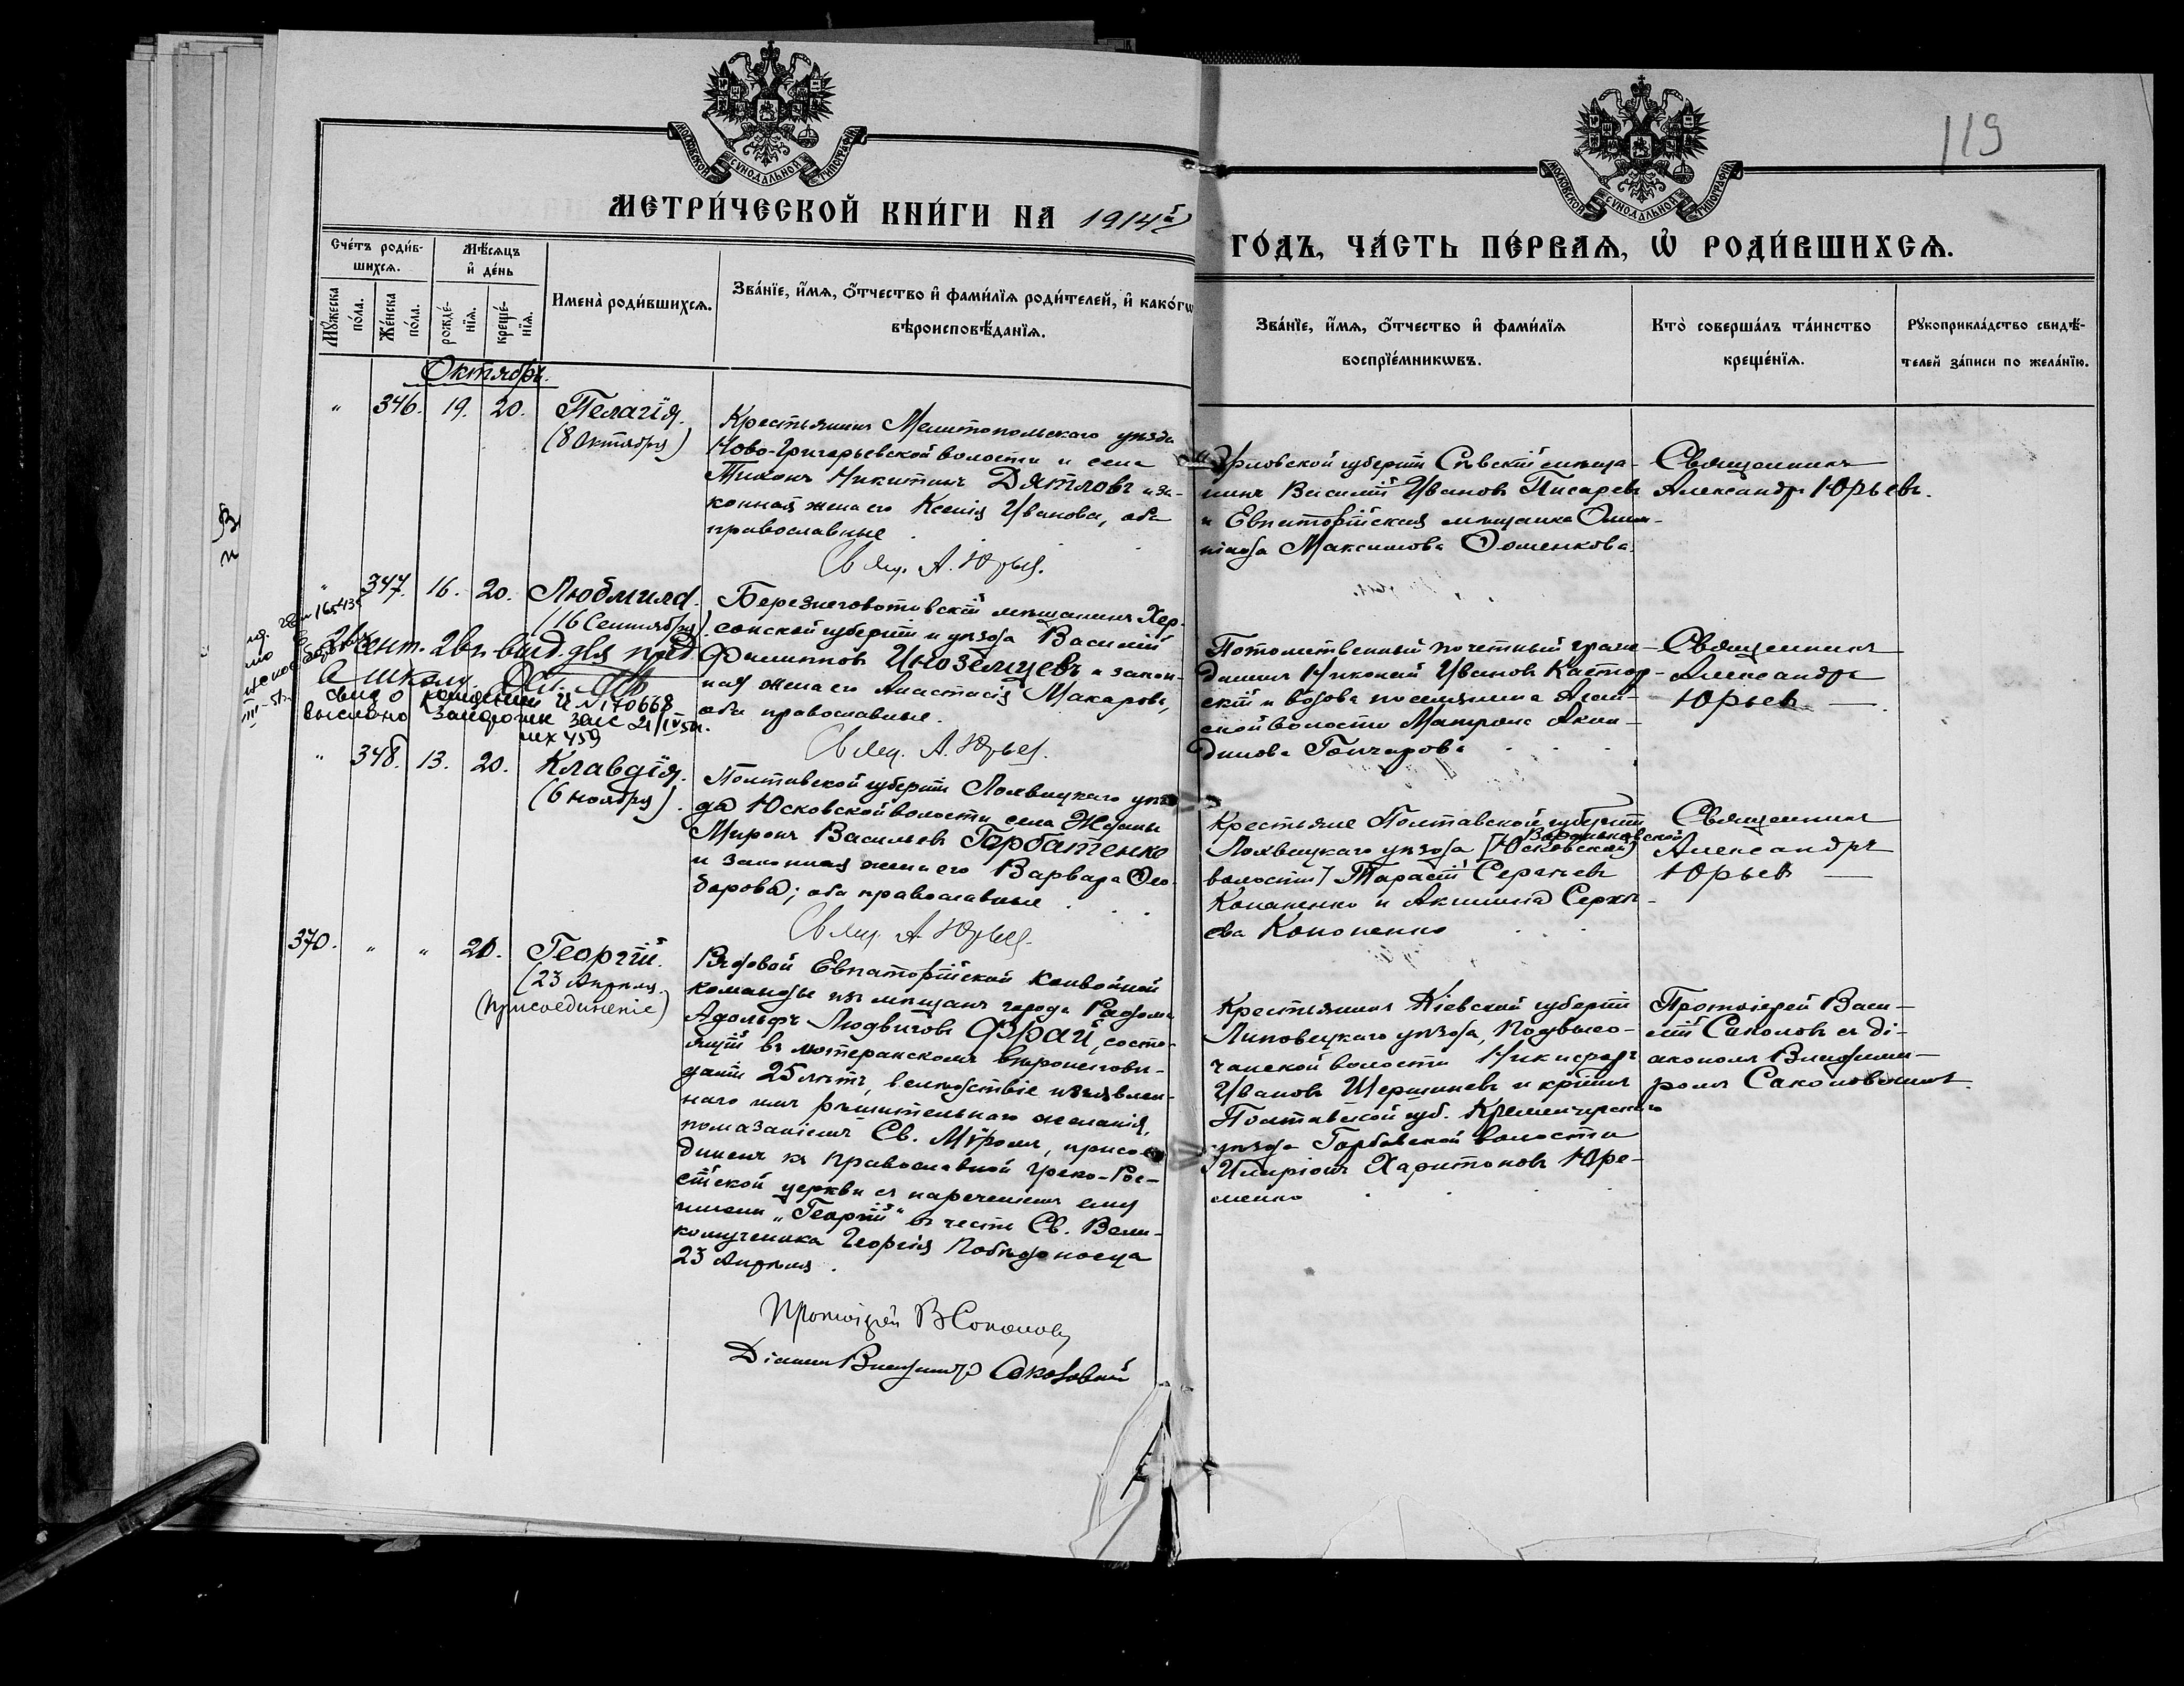 119
МОСКОВСКОЙ СѴНОДАЛЬНОЙ ТИПОГРАФІИ
МОСКОВСКОЙ СѴНОДАЛЬНОЙ ТИПОГРАФІИ
МЕТРИ́ЧЕСКОЙ КНИ́ГИ НА 1914й
ГО́ДЪ, ЧА́СТЬ ПЕ́РВАѦ, Ѡ҆ РОДИ́ВШИХСѦ.
Сче́тъ роди́в-
шихсѧ.
Мꙋ́жеска
по́ла.
Же́нска
по́ла.
Мѣ́сѧцъ
и҆ де́нь
рожде́-
нїѧ.
креще́-
нїѧ.
Имена̀ роди́вшихсѧ.
Зва́нїе, и҆́мѧ, ѻ҆́тчество и҆ фами́лїѧ роди́телей, и҆ како́гѡ
вѣроисповѣ́данїѧ.
Зва́нїе, и҆́мѧ, ѻ҆́тчество и҆ фами́лїѧ
воспрїе́мникѡвъ.
Кто̀ соверша́лъ та́инство
креще́нїѧ.
Рꙋкоприкла́дство свидѣ́-
телей за́писи по жела́нїю.
Октябрь.
" 346. 19. 20. Пелагія.
(8 Октября)
Крестьянинъ Мелитопольскаго уѣзда
Ново-Григорьевской волости и села
Тихонъ Никитинъ Дятловъ и за-
конная жена его Ксенія Иванова, оба
православные
Свящ. А. Юрьев.
Орловской губерніи Сѣвскій мѣща-
нинъ Василій Ивановъ Писаревъ
и Евпаторійская мѣщанка Олим-
піада Максимова Фоменкова.
Священникъ
Александръ Юрьевъ.
" 347. 16. 20. Людмила.
(16 Сентября)
Березнеговатовскій мѣщанинъ Хер-
сонской губерніи и уѣзда Василій
Филипповъ Иноземцевъ и закон-
ная жена его Анастасія Макарова,
оба православные.
Свящ. А. Юрьев.
Потомственный почетный граж-
данинъ Никодим Ивановъ Кастор-
скій и вдова поселянина
ской волости Матрона Акин-
динова Гончарова
Священникъ
Александръ
Юрьевъ —
выд. для пред.
в школу.
свид о рождении № 170668
выслано
459
" 348. 13. 20. Клавдія.
(6 ноября).
Полтавской губерніи Лохвицкаго уѣз-
да Юсковской волости села Жданы
Миронъ Васильевъ Горбатенко
и законная жена его Варвара Ѳео-
дорова; оба православные
Свящ. А. Юрьев.
Крестьяне Полтавской губерніи
Лохвицкаго уѣзда [Юсковской] Варваньковской
волости] Тарасій Сергѣевъ
Кононенко и Акилина Сергѣ-
ева Кононенко
Священникъ
Александръ
Юрьевъ —
370. " " 20. Георгій.
(23 Апрѣля.
(присоединеніе)
Рядовой Евпаторійской конвойной
команды изъ мѣщанъ города Радома
Адольфъ Людвиговъ Фрай, состо-
ящій въ лютеранскомъ вѣроисповѣ-
даніи 25 лѣтъ, вслѣдствіе изъявлен-
наго имъ рѣшительнаго желанія,
помазаніемъ Св. Мѵромъ, присое-
диненъ къ православной греко-Рос-
сійской церкви съ нареченіемъ ему
имени „Георгій" въ честь Св. Вели-
комученика Георгія Побѣдоносца
23 Апрѣля.
Протоіерей В Соколовъ
Діаконъ Владиміръ Соколовскій
Крестьянинъ Кіевской губерніи
Липовецкаго уѣзда, Подвысо-
чанской волости Никифоръ
Ивановъ Шершневъ и кр-нинъ
Полтавской губ. Кременчугскаго
уѣзда Горбовской волости
Иларіонъ Харитоновъ Юре-
менко
Протоіерей Васи-
лій Соколовъ съ ді-
акономъ Владими-
ромъ Соколовскимъ.